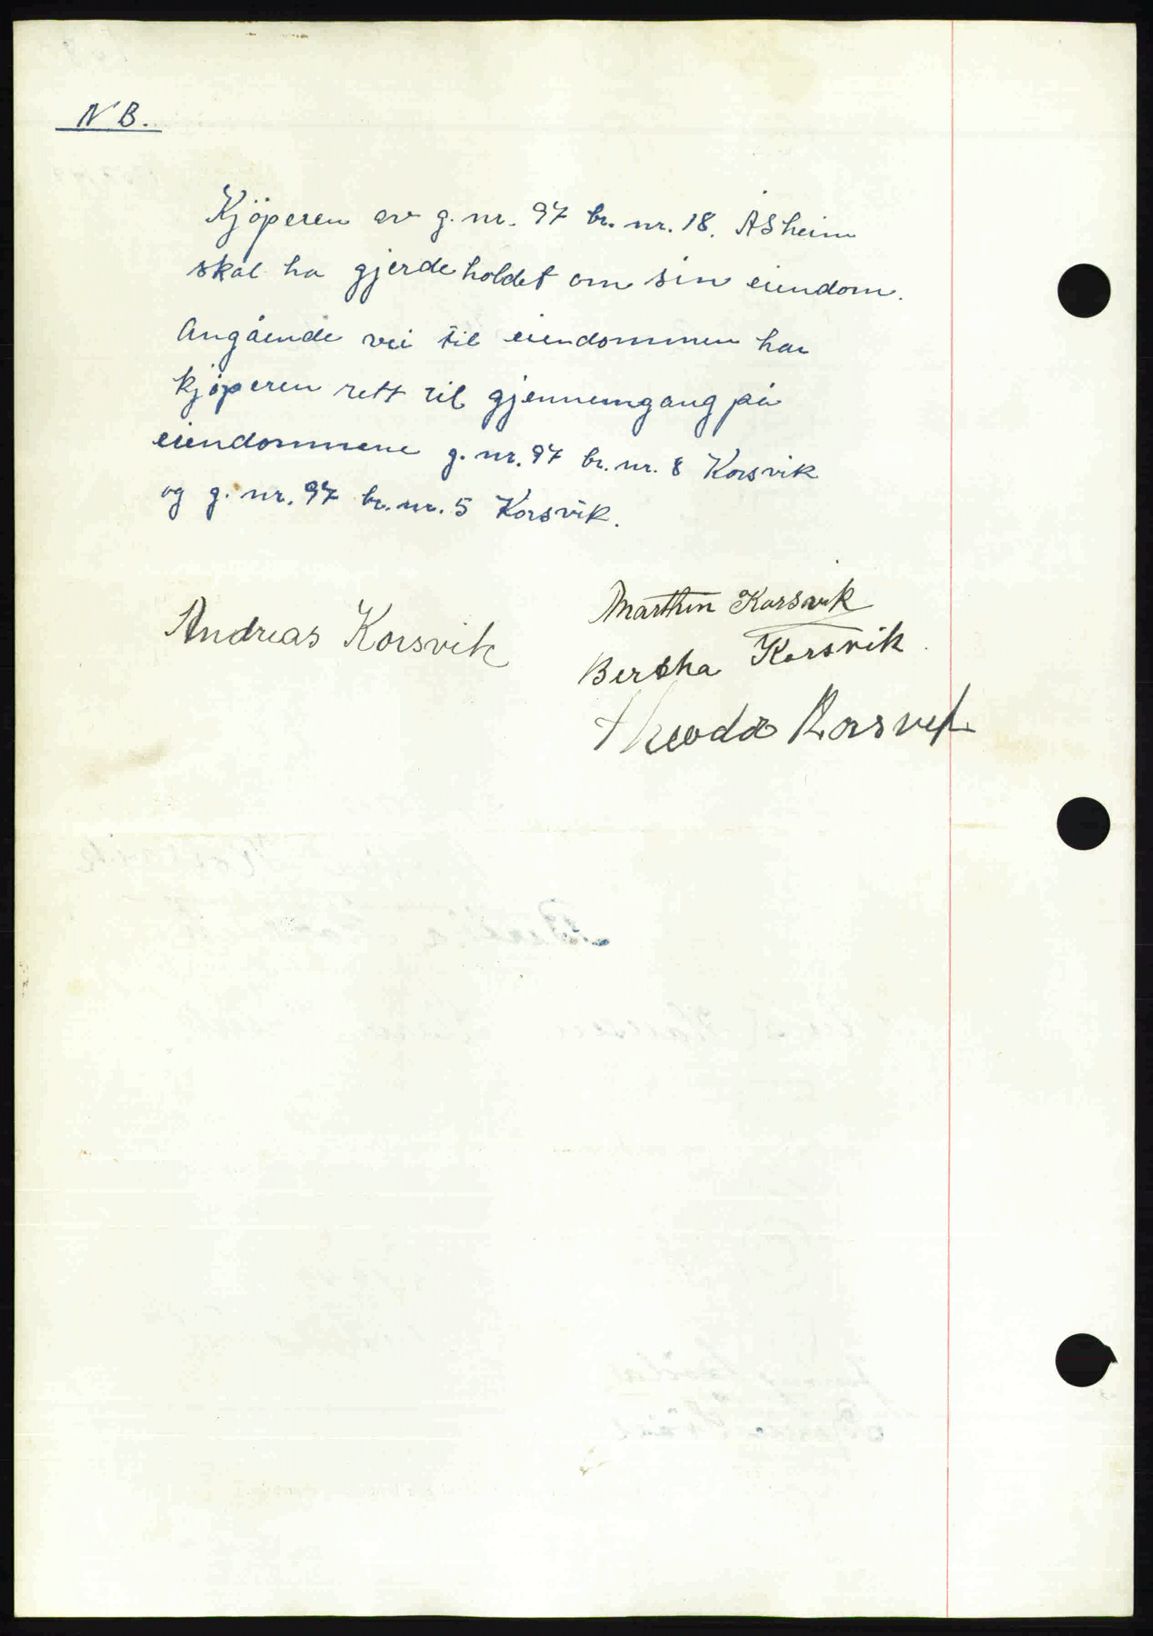 N B.
Kjöperen av g. nr. 97 br. nr. 18. Åsheim
skal ha gjerdeholdet om sin eiendom.
Angående vei til eiendommen har
kjöperen rett til gjennemgang på
eiendommene g. nr. 97 br. nr. 8 Korsvik
og g. nr. 97 br. nr. 5 Korsvik.
Andreas Korsvik
Marthin Korsvik
Bertha Korsvik
Theodor Korsvik